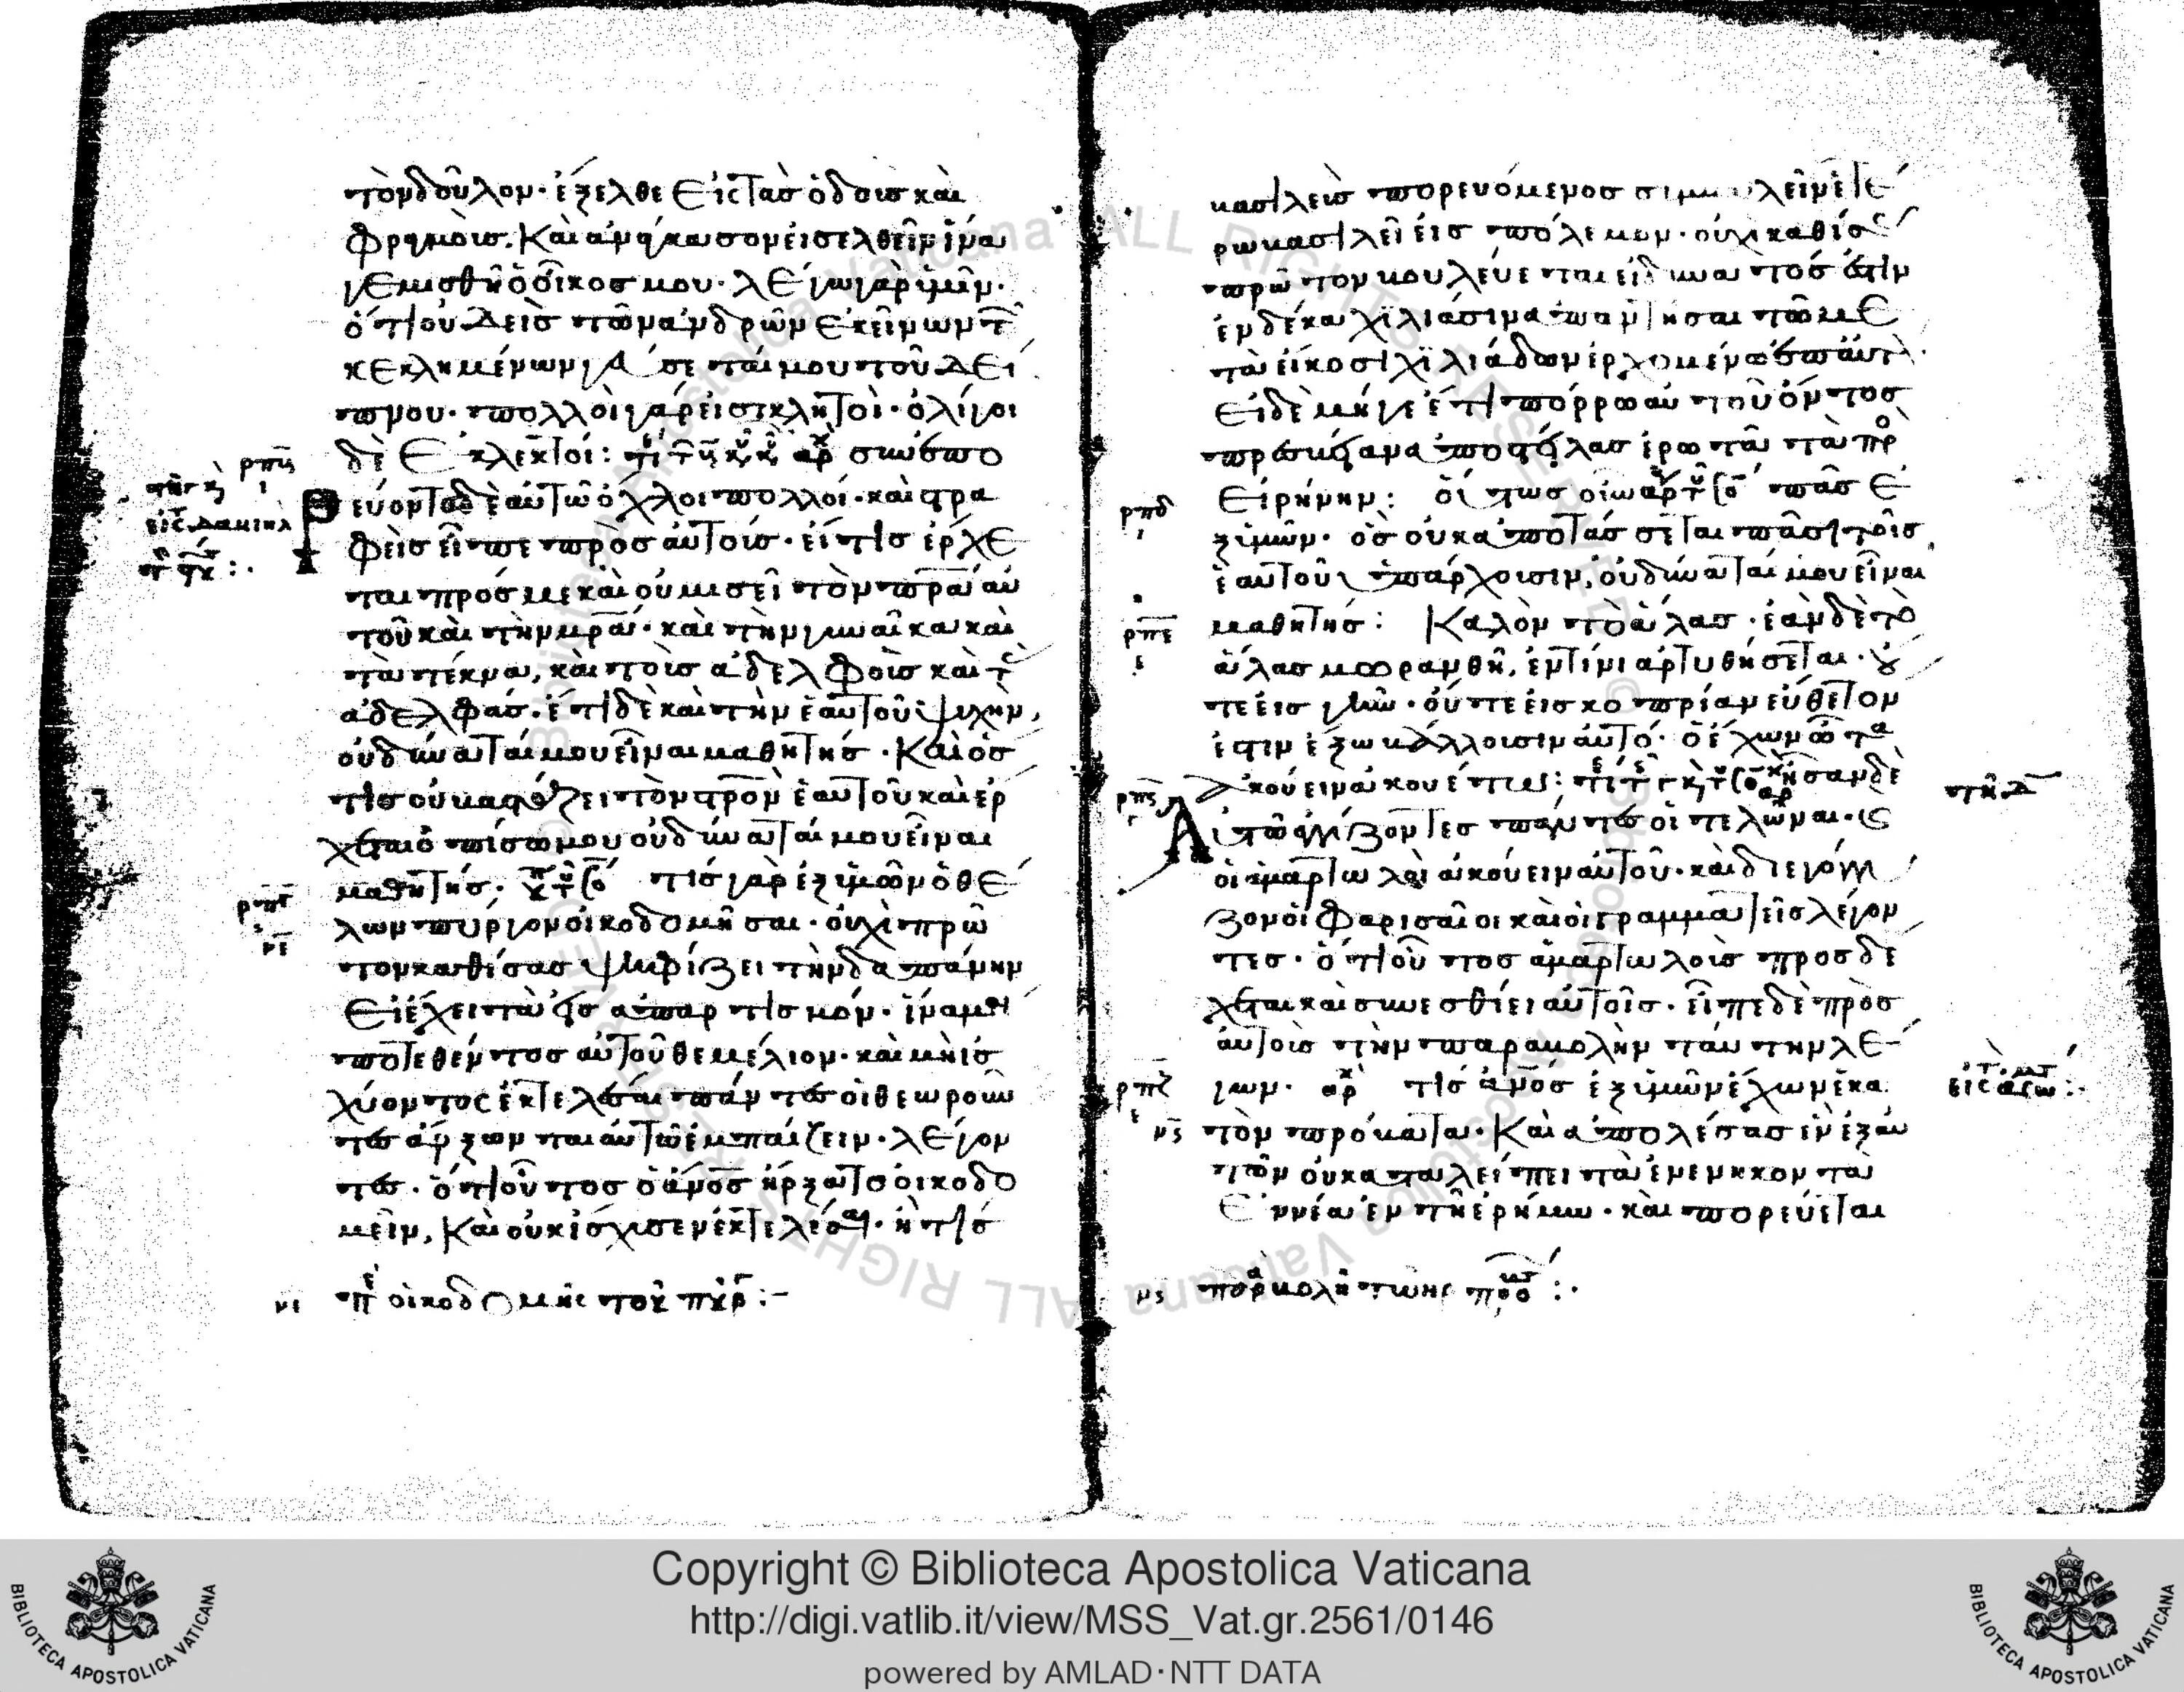 τὸν δοῦλον· ἔξελθε εἰς τὰσ ὁδοὺσ καὶ
φραγμοὺσ. Καὶ ἀνάγκασον εἰσελθεῖν ἵνα
γεμισθῆ ὁ οἶκοσ μου· λέγω γὰρ ὑμῖν·
ὅτι οὐδεὶσ τῶν ἀνδρῶν ἐκείνων τῶν
κεκλημένων γεύσεταί μου τοῦ δεί
πνου· πολλοὶ γάρ εἰσι κλητοὶ· ὀλίγοι
δὲ ἐκλεκτοί: συνεπο
ρπβ
ρεύοντο δὲ αὐτῶ ὄχλοι πολλοί· καὶ στρα
εἰς δανιηλ
φεὶσ εἶπε πρὸσ αὐτούσ· εἴ τισ ἔρχε
ται πρόσ με καὶ οὐ μισεῖ τὸν πρα αὐ
τοῦ καὶ τὴν μρα· καὶ τὴν γυναῖκα καὶ
τὰ τέκνα, καὶ τοὺσ ἀδελφοὺσ καὶ τ
ἀδελφάσ· ἔτι δὲ καὶ τὴν ἑαυτοῦ ψυχὴν,
οὐ δύναταί μου εἶναι μαθητήσ· Καὶ ὅσ
τισ οὐ βαστάζει τὸν στρον ἑαυτοῦ καὶ ἔρ
χεται ὀπίσω μου οὐ δύναταί μου εἶναι
μαθητήσ· τίσ γὰρ ἐξ ὑμῶν ὁ θέ
ρπγ
λων πύργον οἰκοδομῆσαι· οὐχὶ πρῶ
νε
τον καθίσασ ψηφίζει τὴν δαπάνην
εἰ ἔχει τὰ εἰσ ἀπαρτισμόν· ἵνα μὴ
ποτε θέντοσ αὐτοῦ θεμέλιον· καὶ μὴ ἰσ
χύοντος ἐκτελέσαι πάντεσ οἱ θεωροῦν
τεσ ἄρξωνται αὐτῶ ἐμπαίζειν· λέγον
τεσ· ὅτι οὗτοσ ὁ ἄνοσ ἤρξατο οἰκοδο
μεῖν, Καὶ οὐκ ἴσχυσεν ἐκτελέσαι· ἢ τίσ
νε π οἰκοδομῆς τοῦ πύρ:-
βασιλεὺσ πορευόμενοσ συμβαλεῖν ἑτέ
ρω βασιλεῖ εἰσ πόλεμον· οὐχὶ καθίσ
πρῶτον βουλεύεται εἰ δυνατόσ ἐστιν
ἐν δέκα χιλιάσιν ἀπαντῆσαι τῶ με
τὰ εἴκοσι χιλιάδων ἐρχομένω ἐπ αὐτ
εἰ δὲ μήγε ἔτι πόρρω αὐτοῦ ὄντοσ
πρεσβείαν ἀποστείλασ ἐρωτᾶ τὰ πρ
εἰρήνην: οὕτωσ οὖν πᾶσ ἐ
ρπδ
ξ ὑμῶν· ὃσ οὐκ ἀποτάσσεται πᾶσι τοῖσ
ἑαυτοῦ ὑπάρχουσιν, οὐ δύναταί μου εἶναι
ρπε
μαθητήσ: Καλὸν τὸ ἅλασ· ἐὰν δὲ τὸ
ἅλασ μωρανθῆ, ἐν τίνι ἀρτυθήσεται· οὔ
τε εἰσ γῆν· οὔτε εἰσ κοπρίαν εὔθετόν
ἐστιν ἔξω βάλλουσιν αὐτό· ὁ ἔχων ὦτα
ἀκούειν ἀκουέτω: ἦσαν δὲ
ρπς
αὐτῶ ἐγγίζοντεσ πάντεσ οἱ τελῶναι·
οἱ ἁμαρτωλοὶ ἀκούειν αὐτοῦ· καὶ διεγόγγ
ζον οἱ φαρισαῖοι καὶ οἱ γραμματεῖσ λέγον
τεσ· ὅτι οὗτοσ ἁμαρτωλοὺσ προσδέ
χεται καὶ συνεσθίει αὐτοῖσ· εἶπε δὲ πρὸσ
αὐτοὺσ τὴν παραβολὴν ταύτην λέ
ρπζ
γων· τίσ ἄνοσ ἐξ ὑμῶν ἔχων ἑκα
νς
τὸν πρόβατα· Καὶ ἀπολέσασ ἓν ἐξ αὐ
τῶν οὐ καταλείπει τὰ ἐνενήκοντα
ἐννέα ἐν τῆ ἐρήμω· καὶ πορεύεται
νς
Copyright © Biblioteca Apostolica Vaticana
http://digi.vatlib.it/view/MSS_Vat.gr.2561/0146
powered by AMLAD·NTT DATA
BIBLIOTECA APOSTOLICA VATICANA
BIBLIOTECA APOSTOLICA VATICANA